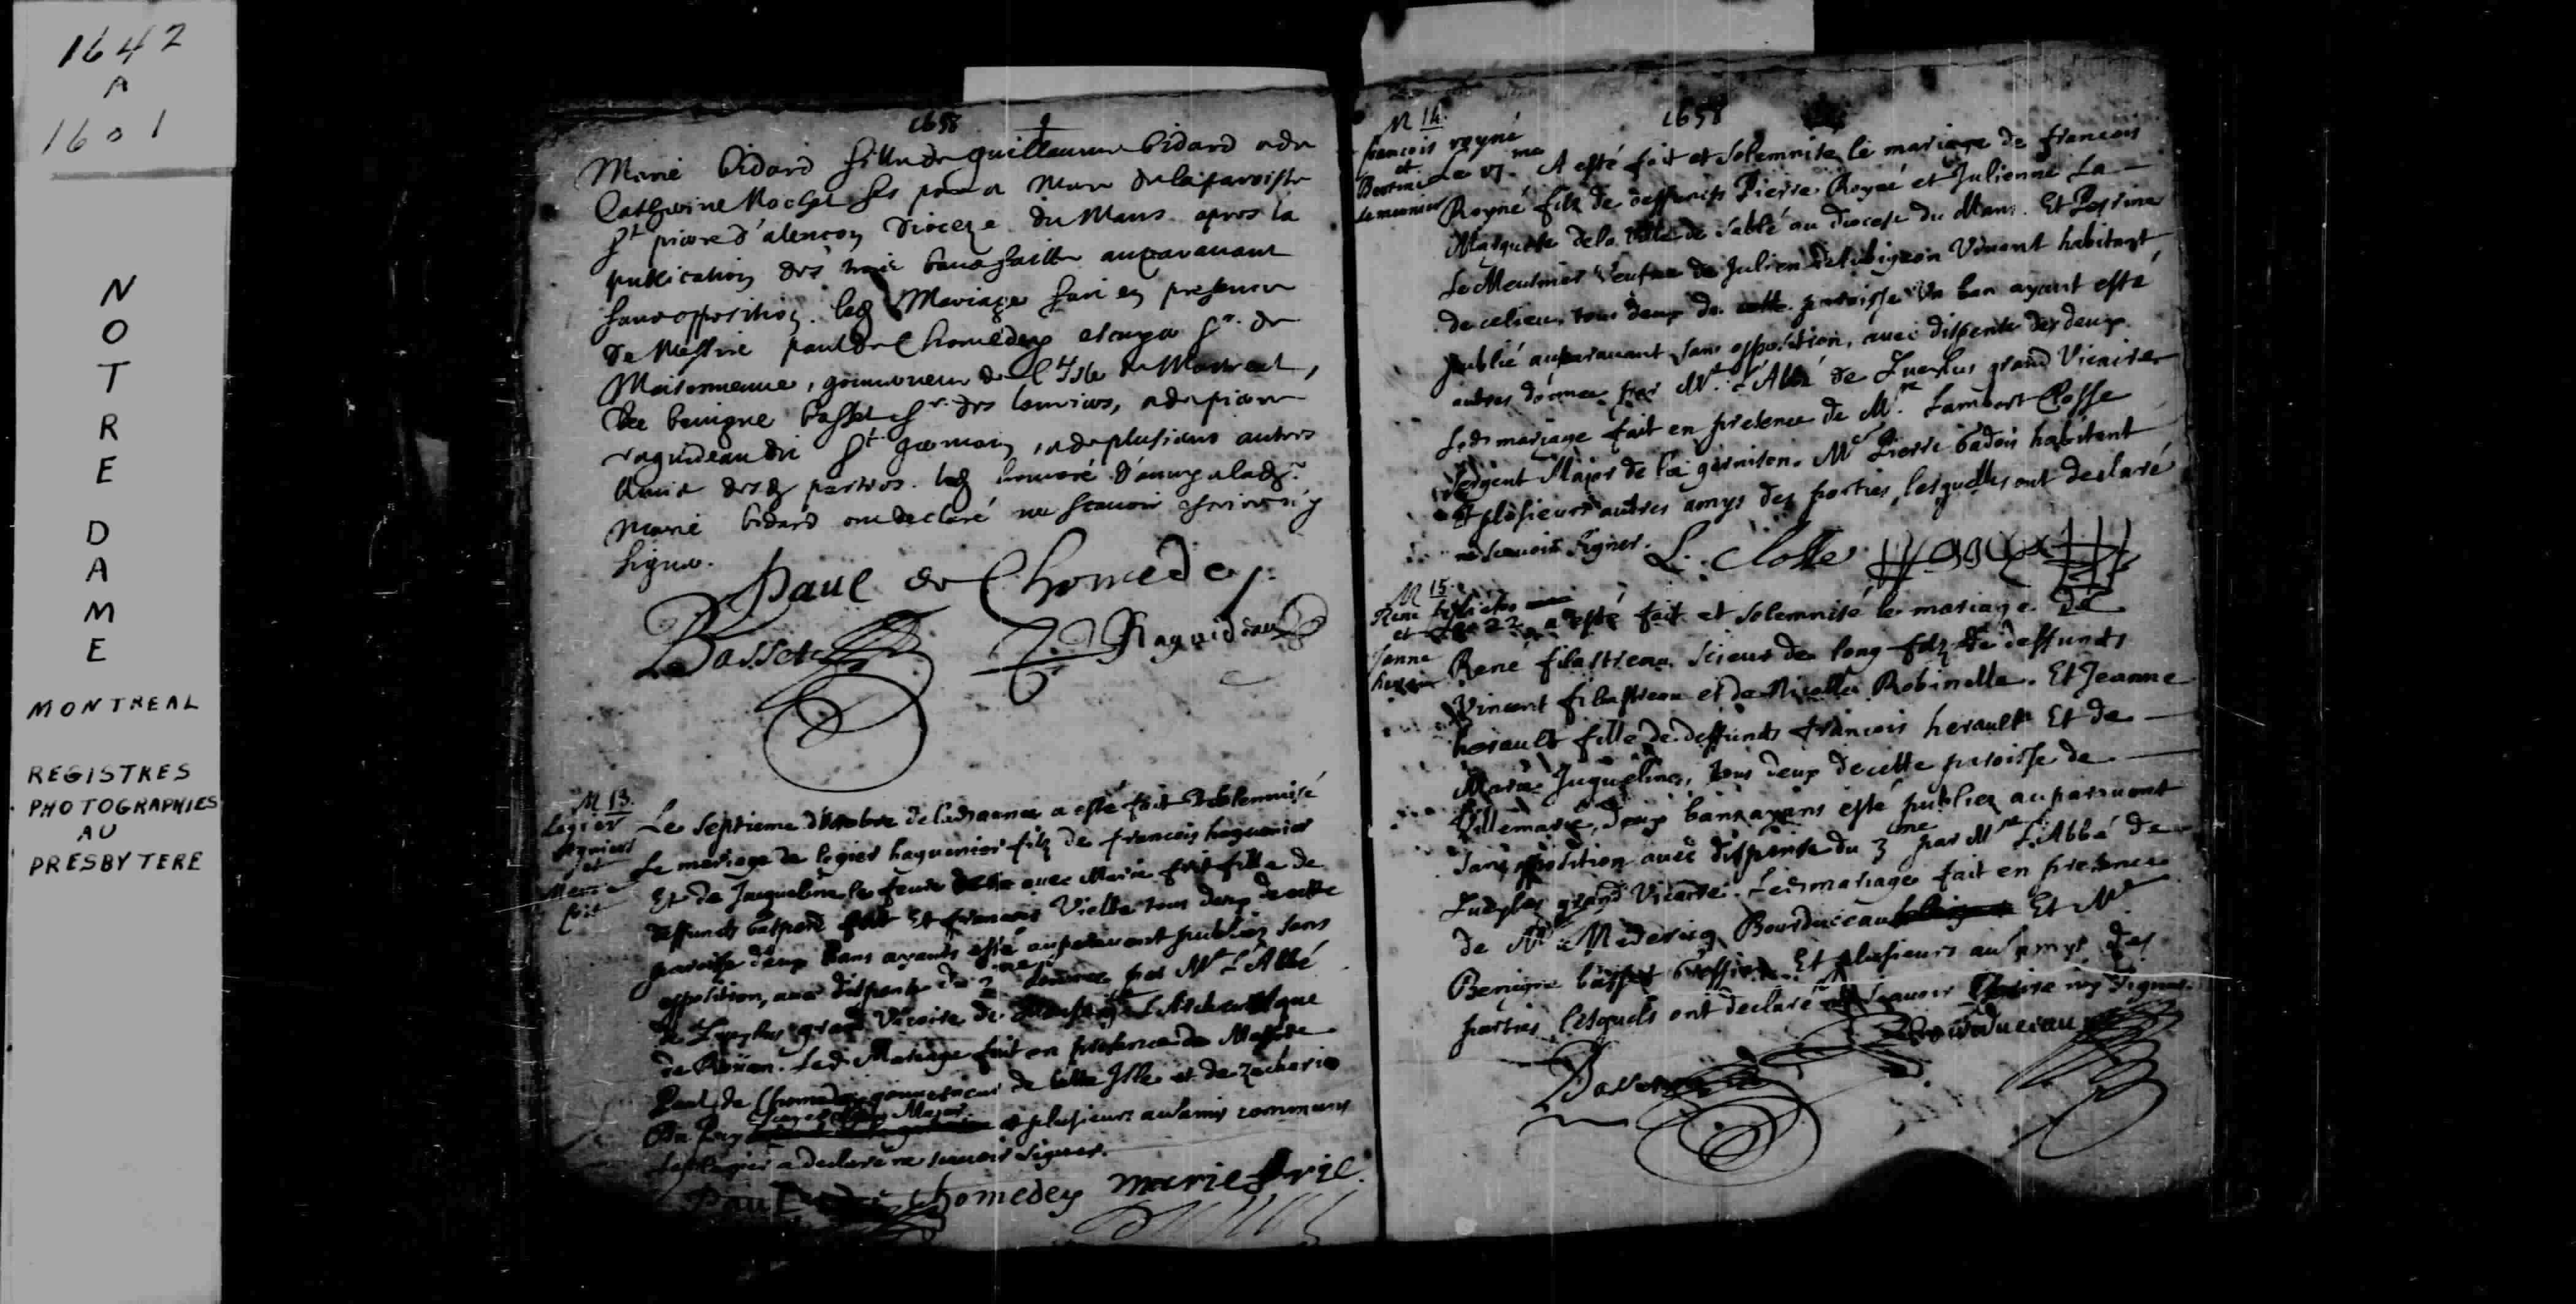 1642
A
1601
NOTRE DAME
MONTREAL
REGISTRES
PHOTOGRAPHIES
AU
PRESBYTERE
1658
Marie bidard fille de guillaume bidard et de
Catherine Mochet ses pere et Mere de la paroisse
St pierre d'alencon Dioceze du Mans apres la
publication des trois bans faitte auparavant
sans opposition. led Mariage fait en presence
de Messire paul de Chomedey escuyer Sr. de
Maisonneuve, gouverneur de l'Isle de Montreal,
de benigne basset Sr. des lauriers, et de pierre
raguideau dit St germain, et de plusieurs autres
amis desd parties. led
Marie bidard ont declaré ne scavoir escrire ny
signer.
Paul de Chomedey
Basset Raguideau
M 13.
Legier
aguenier
et
Marie
frie
Le Septieme d'octobre de lad année a esté fait et solemnisé
Le mariage de legier haguenier filz de francois haguenier
Et de Jaqueline le feuve avec Marie frie fille de
deffunct Et francoise Vielle tous deux de cette
paroisse deux bans ayants esté auparavant publiez sans
opposition, avec dispense du 3 donnee par Mr L'Abbé
de Queylus grand Vicaire de L'Archevesque
de Roüan. Led. Mariage fait en presence de Messire
Paul de Chomedey gouverneur de cette Isle et de Zacharie
Du Puy Major et plusieurs au amis communs
Led legier a declaré ne scavoir signer.
Paul de Chomedey marie frie
1658
M 14.
francois royné
et
Perrine
Le meunier
Le vj.me A esté fait et solemnisé le mariage de francois
Royné filz de deffuncts Pierre Royné et Julienne La
Marquette de la Ville de Sablé au diocese du Mans. Et Perrine
Le Meusnier Veufve de Julien Daubigeon Vivant habitant
de ce lieu, tous deux de cette paroisse Un ban ayant esté
publié auparavant sans opposition, avec dispense des deux
autres donnee par Mr. L'Abbé de Queylus grand Vicaire
Led. mariage fait en presence de Mr. Lambert Closse
Sergent Major de la garnison. Mr Pierre Gadois habitant
Et plusieurs autres amys des parties, lesquelles ont declaré
ne scavoir Signer. L. Closse
M 15.
René
et
Janne
Le 22 a esté fait et solemnisé le mariage de
René filastreau Scieur de long filz de deffunts
Vincent filastreau et de Nicolle Robinelle. Et Jeanne
herault fille de deffunts francois herault Et de
Marie Juqueline, tous deux de cette paroisse de
Villemarie, deux bans ayans esté publiez auparavant
sans opposition avec dispense du 3me par Mr. L'Abbé de
Queylus grand Vicaire. Led mariage fait en presence
de Mr Medericq Bourduceau Et Mr
Benigne basset Greffier Et plusieurs au amys des
parties, lesquels ont declaré ne scavoir Escrire ny signer.
Bourduceau
Basset